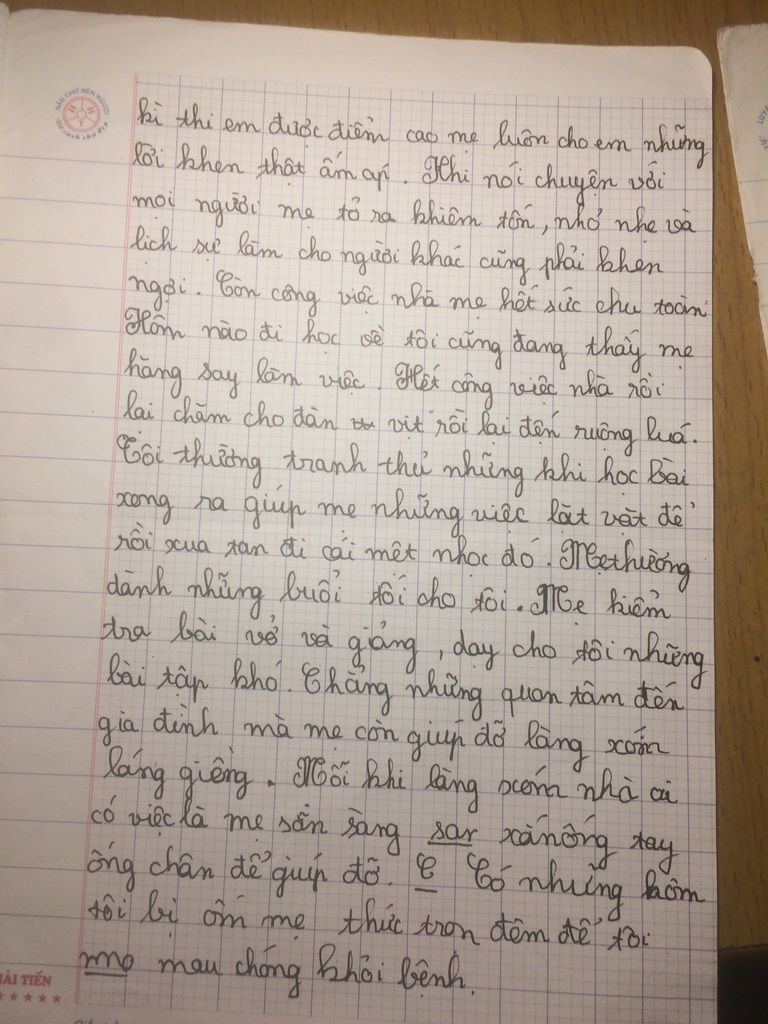 NẮN CHỮ RÈN NGƯỜI
kì thi em được điểm cao mẹ luôn cho em những
lời khen thật ấm áp. Khi nói chuyện với
mọi người mẹ tỏ ra khiêm tốn, nhỏ nhẹ và
lịch sự làm cho người khác cũng phải khen
ngợi. Còn công việc nhà mẹ hết sức chu toàn
Hôm nào đi học về tôi cũng đang thấy mẹ
hăng say làm việc. Hết công việc nhà rồi
lại chăm cho đàn vịt rồi lại đến ruộng luá.
Tôi thường tranh thủ những khi học bài
xong ra giúp mẹ những việc lặt vặt để
rồi xua tan đi cái mệt nhọc đó. Mẹ thường
dành những buổi tối cho tôi. Mẹ kiểm
tra bài vở và giảng, dạy cho tôi những
bài tập khó. Chẳng những quan tâm đến
gia đình mà mẹ còn giúp đỡ làng xóm
láng giềng. Mỗi khi làng xóm nhà ai
có việc là mẹ sẵn sàng sar xắn ống tay
ống chân để giúp đỡ. C Có những hôm
tôi bị ốm mẹ thức trọn đêm để tôi
mo mau chóng khỏi bệnh.
HẢI TIẾN